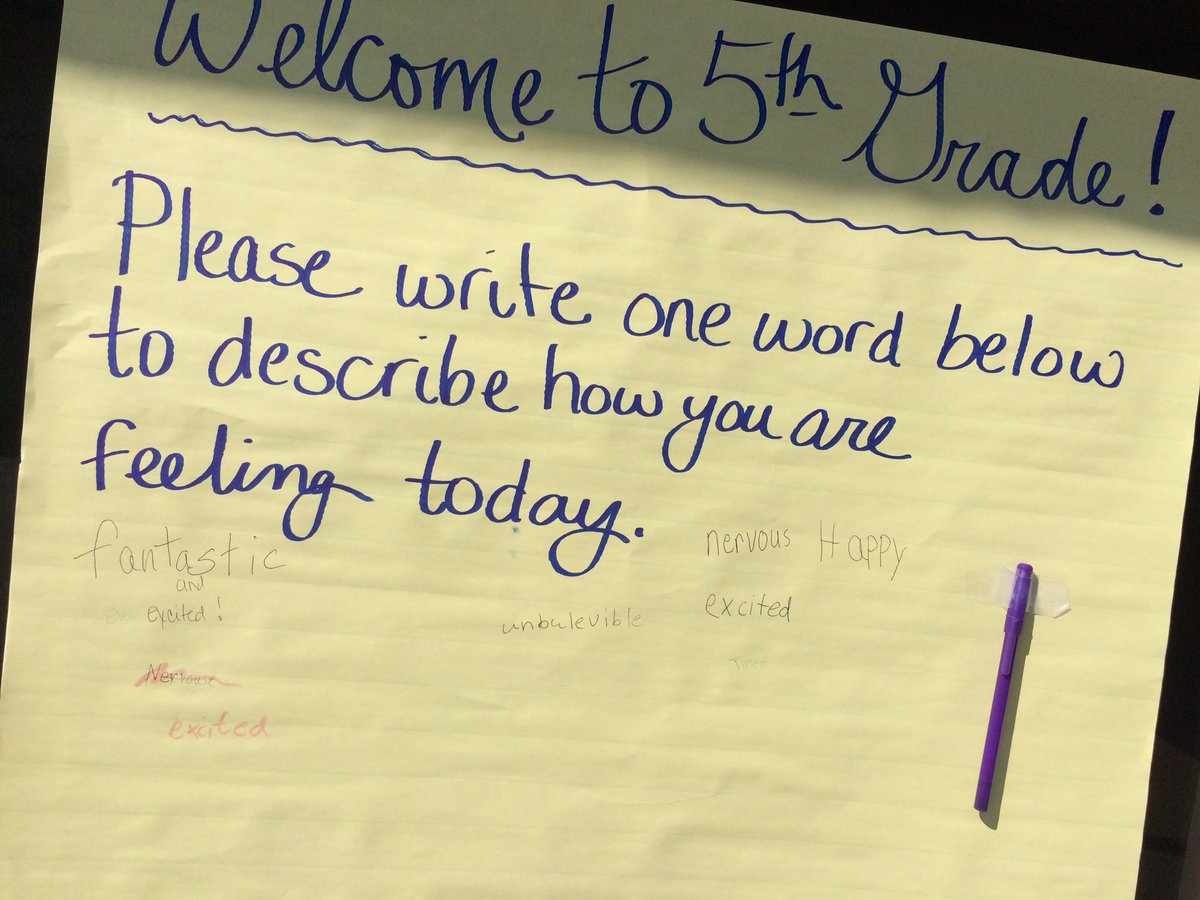 Welcome to 5th Grade!
Please write one word below
to describe how you are
feeling today.
fantastic
and
excited!
unbulevible
nervous Happy
excited
Tired
Nervouse
excited